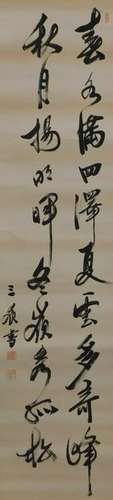 春水滿四澤夏雲多奇峰
秋月揚明暉冬嶺秀孤松
三泉書